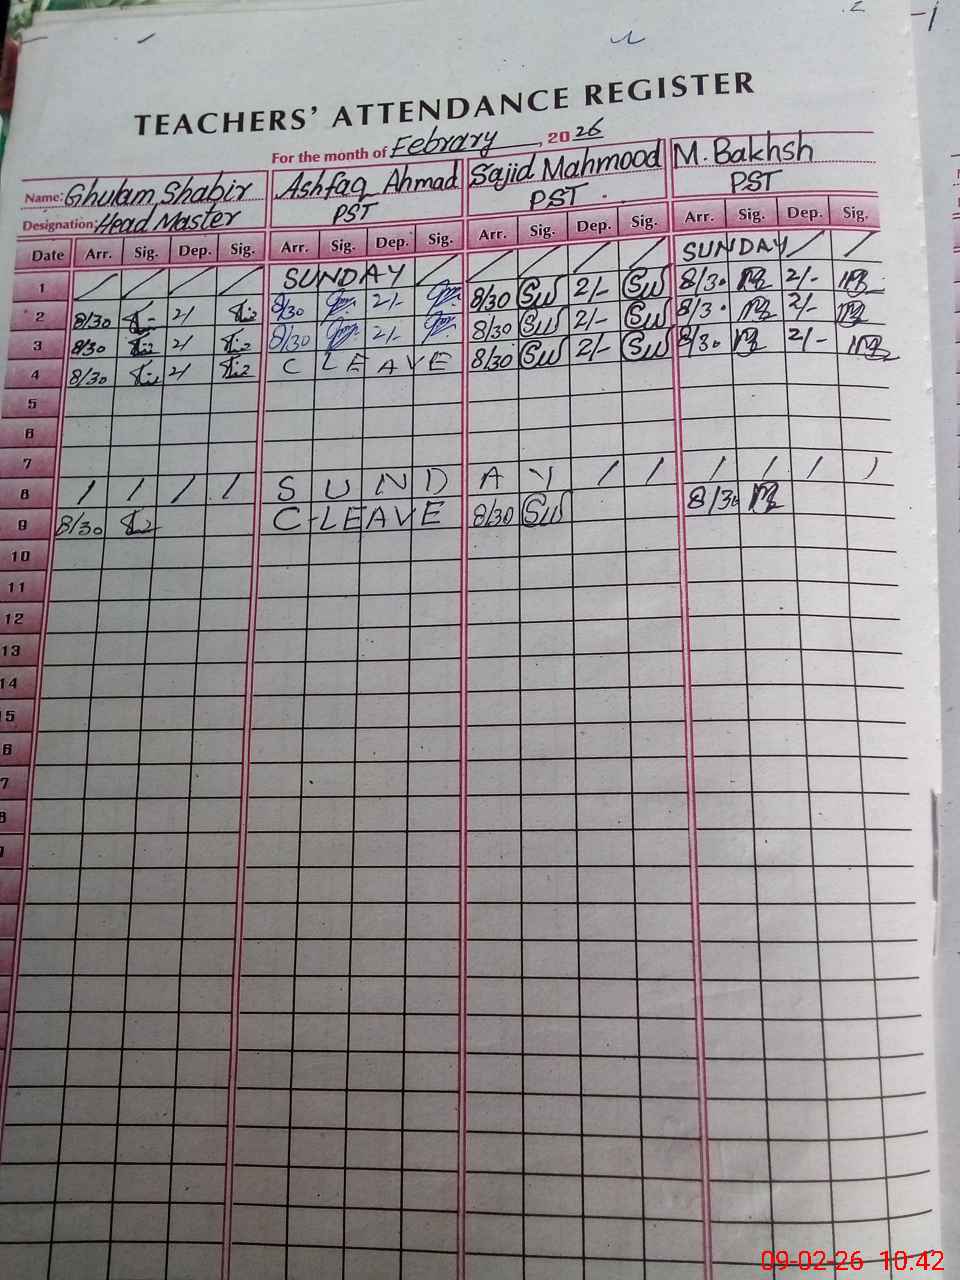 TEACHERS' ATTENDANCE REGISTER
For the month of Febrary, 2026
Name: Ghulam Shabir Ashfaq Ahmad Sajid Mahmood M. Bakhsh
Designation: Head Master PST PST PST
Date Arr. Sig. Dep. Sig. Arr. Sig. Dep. Sig. Arr. Sig. Dep. Sig. Arr. Sig. Dep. Sig.
1 / / / / SUNDAY / / / / / SUNDAY / /
2 8/30 2/ 8/30 2/- 8/30 SW 2/- SW 8/30 2/-
3 8/30 2/ 8/30 2/- 8/30 SW 2/- SW 8/30 2/-
4 8/30 2/ C LEAVE 8/30 SW 2/- SW 8/30 2/-
5
6
7
8 / / / / SUNDAY / / / / / /
9 8/30 C-LEAVE 8/30 SW 8/30
10
11
12
13
14
15
6
7
8
09-02-26 10.42